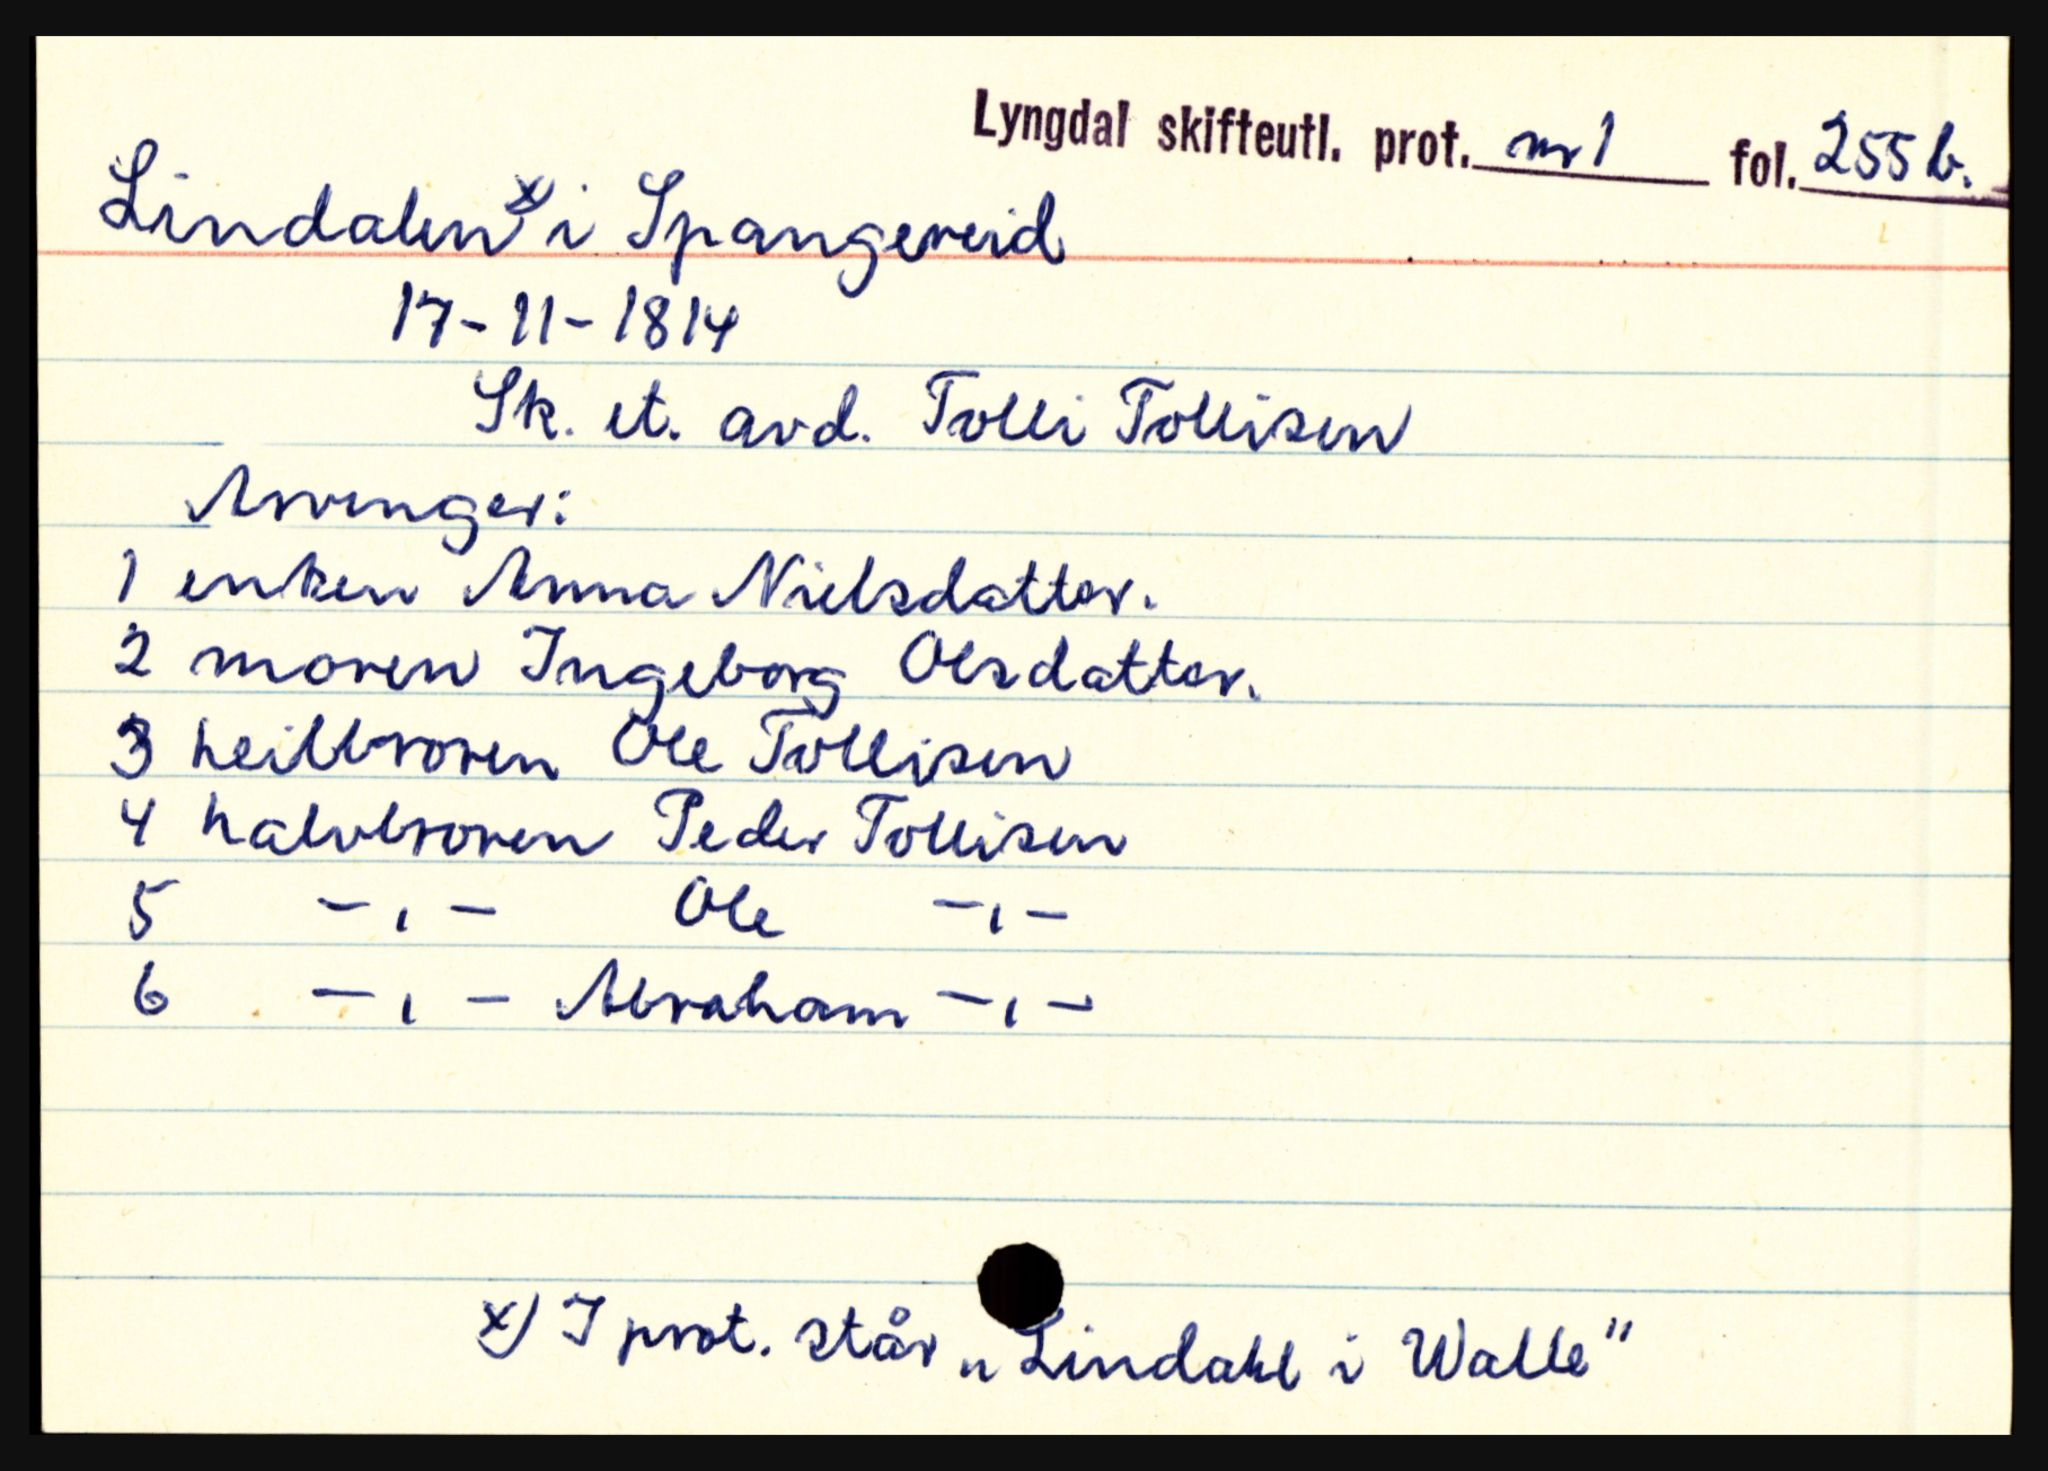 Lyngdal skifteutl. prot. nr 1 fol. 255 b.
Lindalen x) i Spangereid
17-11-1814
Sk. et. avd. Tolli Tollisen
Arvinger:
1 enken Anna Nielsdatter.
2 moren Ingeborg Olsdatter.
3 heilbroren Ole Tollisen
4 halvbroren Peder Tollisen
5 -,- Ole -,-
6 -,- Abraham -,-
x) I prot. står „Lindahl i Walle"